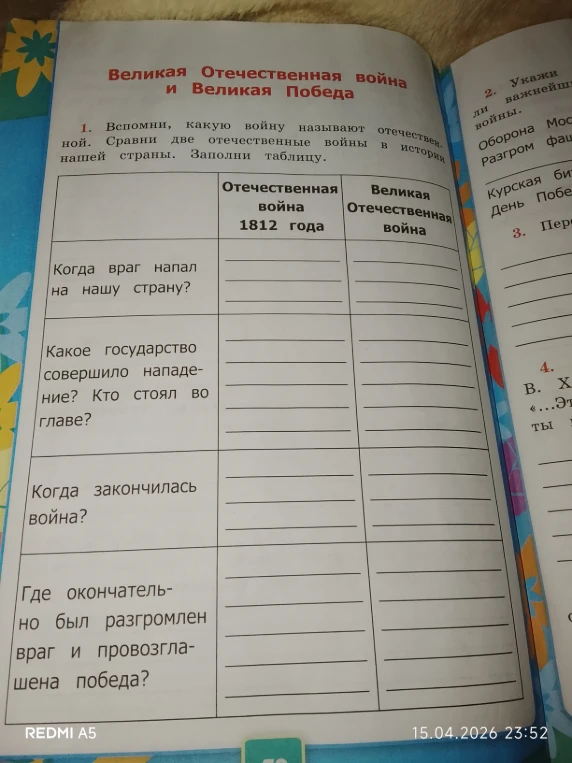 Великая Отечественная война
и Великая Победа
1. Вспомни, какую войну называют отечествен-
ной. Сравни две отечественные войны в истории
нашей страны. Заполни таблицу.
Отечественная
война
1812 года
Великая
Отечественная
война
Когда враг напал
на нашу страну?
Какое государство
совершило нападе-
ние? Кто стоял во
главе?
Когда закончилась
война?
Где окончатель-
но был разгромлен
враг и провозгла-
шена победа?
2. Укажи
ли важнейш
войны.
Оборона Мос
Разгром фаш
Курская би
День Побе
3. Пере
4.
В. Х
«...Эт
ты
REDMI A5
15.04.2026 23:52